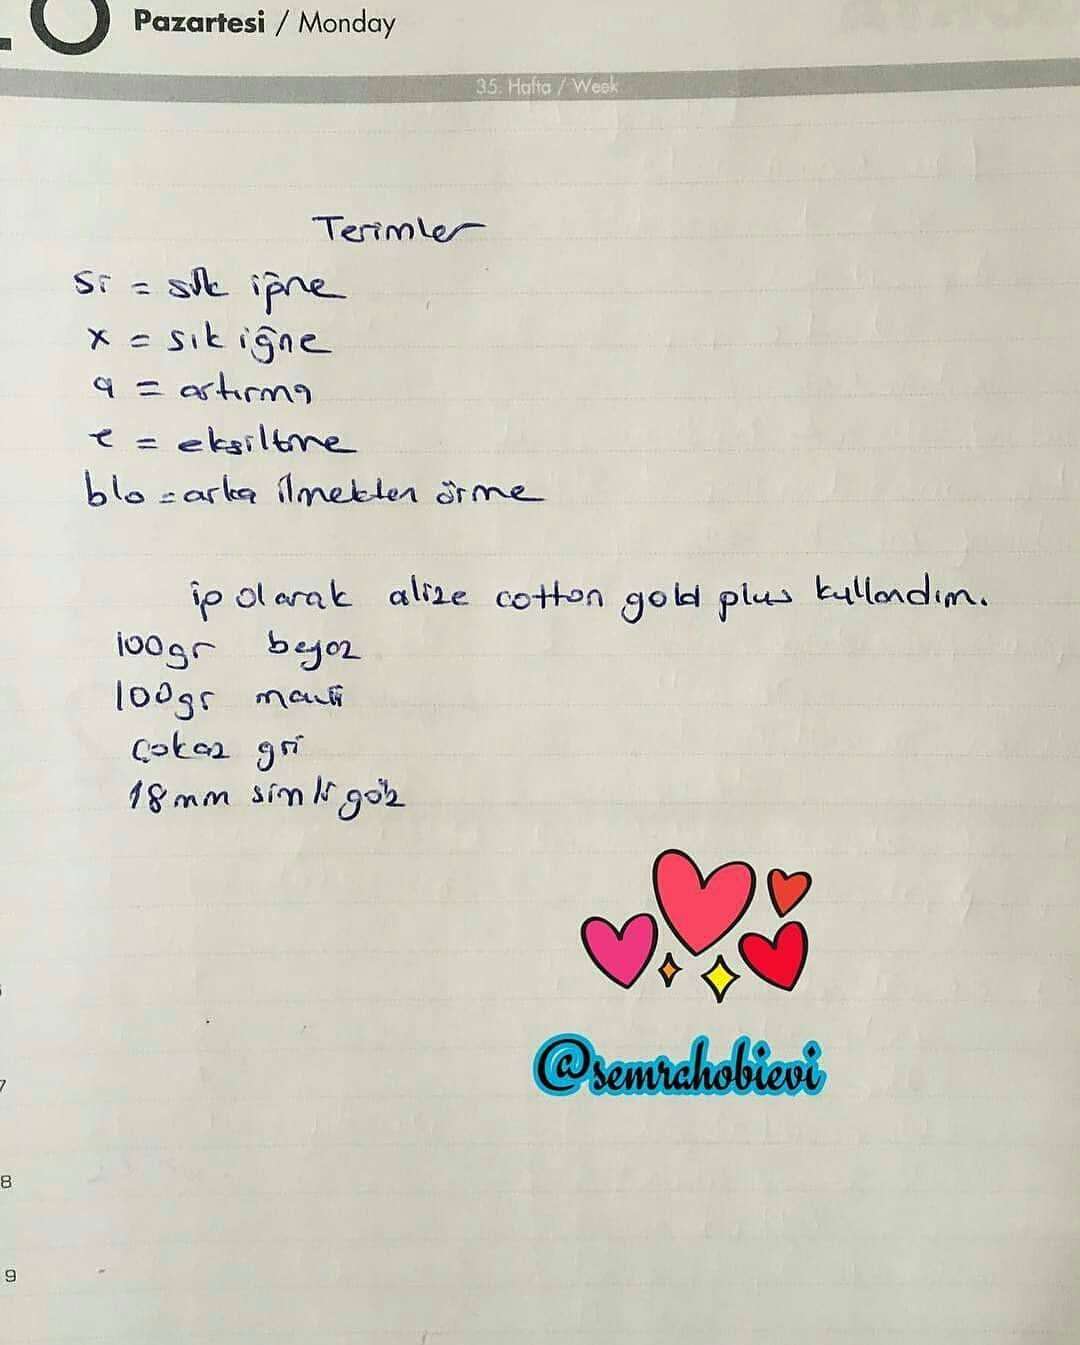 Pazartesi / Monday
35. Hafta / Week
Terimler
si = sık iğne
x = sık iğne
a = artırma
e = eksiltme
blo = arka ilmekten örme
ip olarak alize cotton gold plus kullandım.
100gr beyaz
100gr mavi
çokaz gri
18mm simli göz
@semrahobievi
8
9